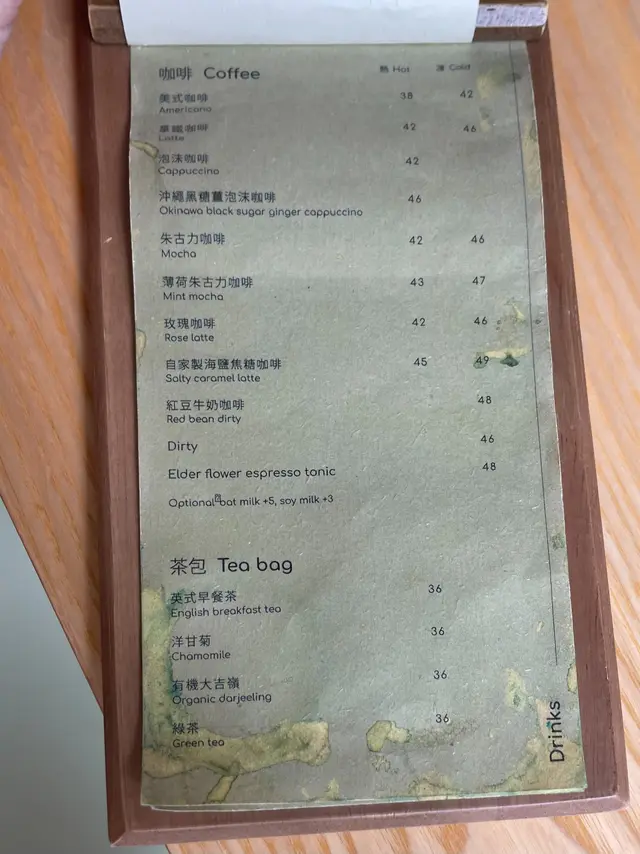 咖啡 Coffee 熱 Hot 凍 Cold
美式咖啡 38 42
Americano
拿鐵咖啡 42 46
Latte
泡沫咖啡 42
Cappuccino
沖繩黑糖薑泡沫咖啡 46
Okinawa black sugar ginger cappuccino
朱古力咖啡 42 46
Mocha
薄荷朱古力咖啡 43 47
Mint mocha
玫瑰咖啡 42 46
Rose latte
自家製海鹽焦糖咖啡 45 49
Salty caramel latte
紅豆牛奶咖啡 48
Red bean dirty
Dirty 46
Elder flower espresso tonic 48
Optional oat milk +5, soy milk +3
茶包 Tea bag
英式早餐茶 36
English breakfast tea
洋甘菊 36
Chamomile
有機大吉嶺 36
Organic darjeeling
綠茶 36
Green tea
Drinks